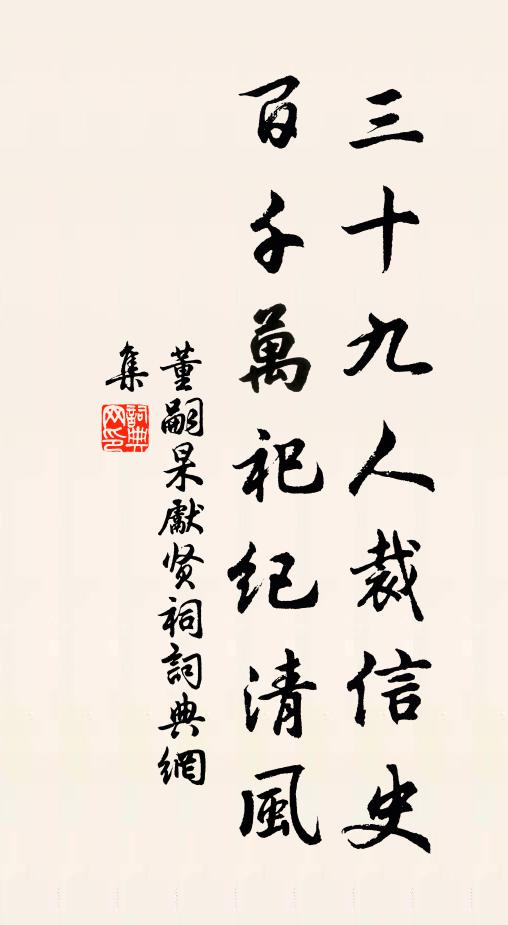 三十九人裁信史
百千萬祀纪清風
董嗣杲獻贤祠詞典網
集
詞典网印